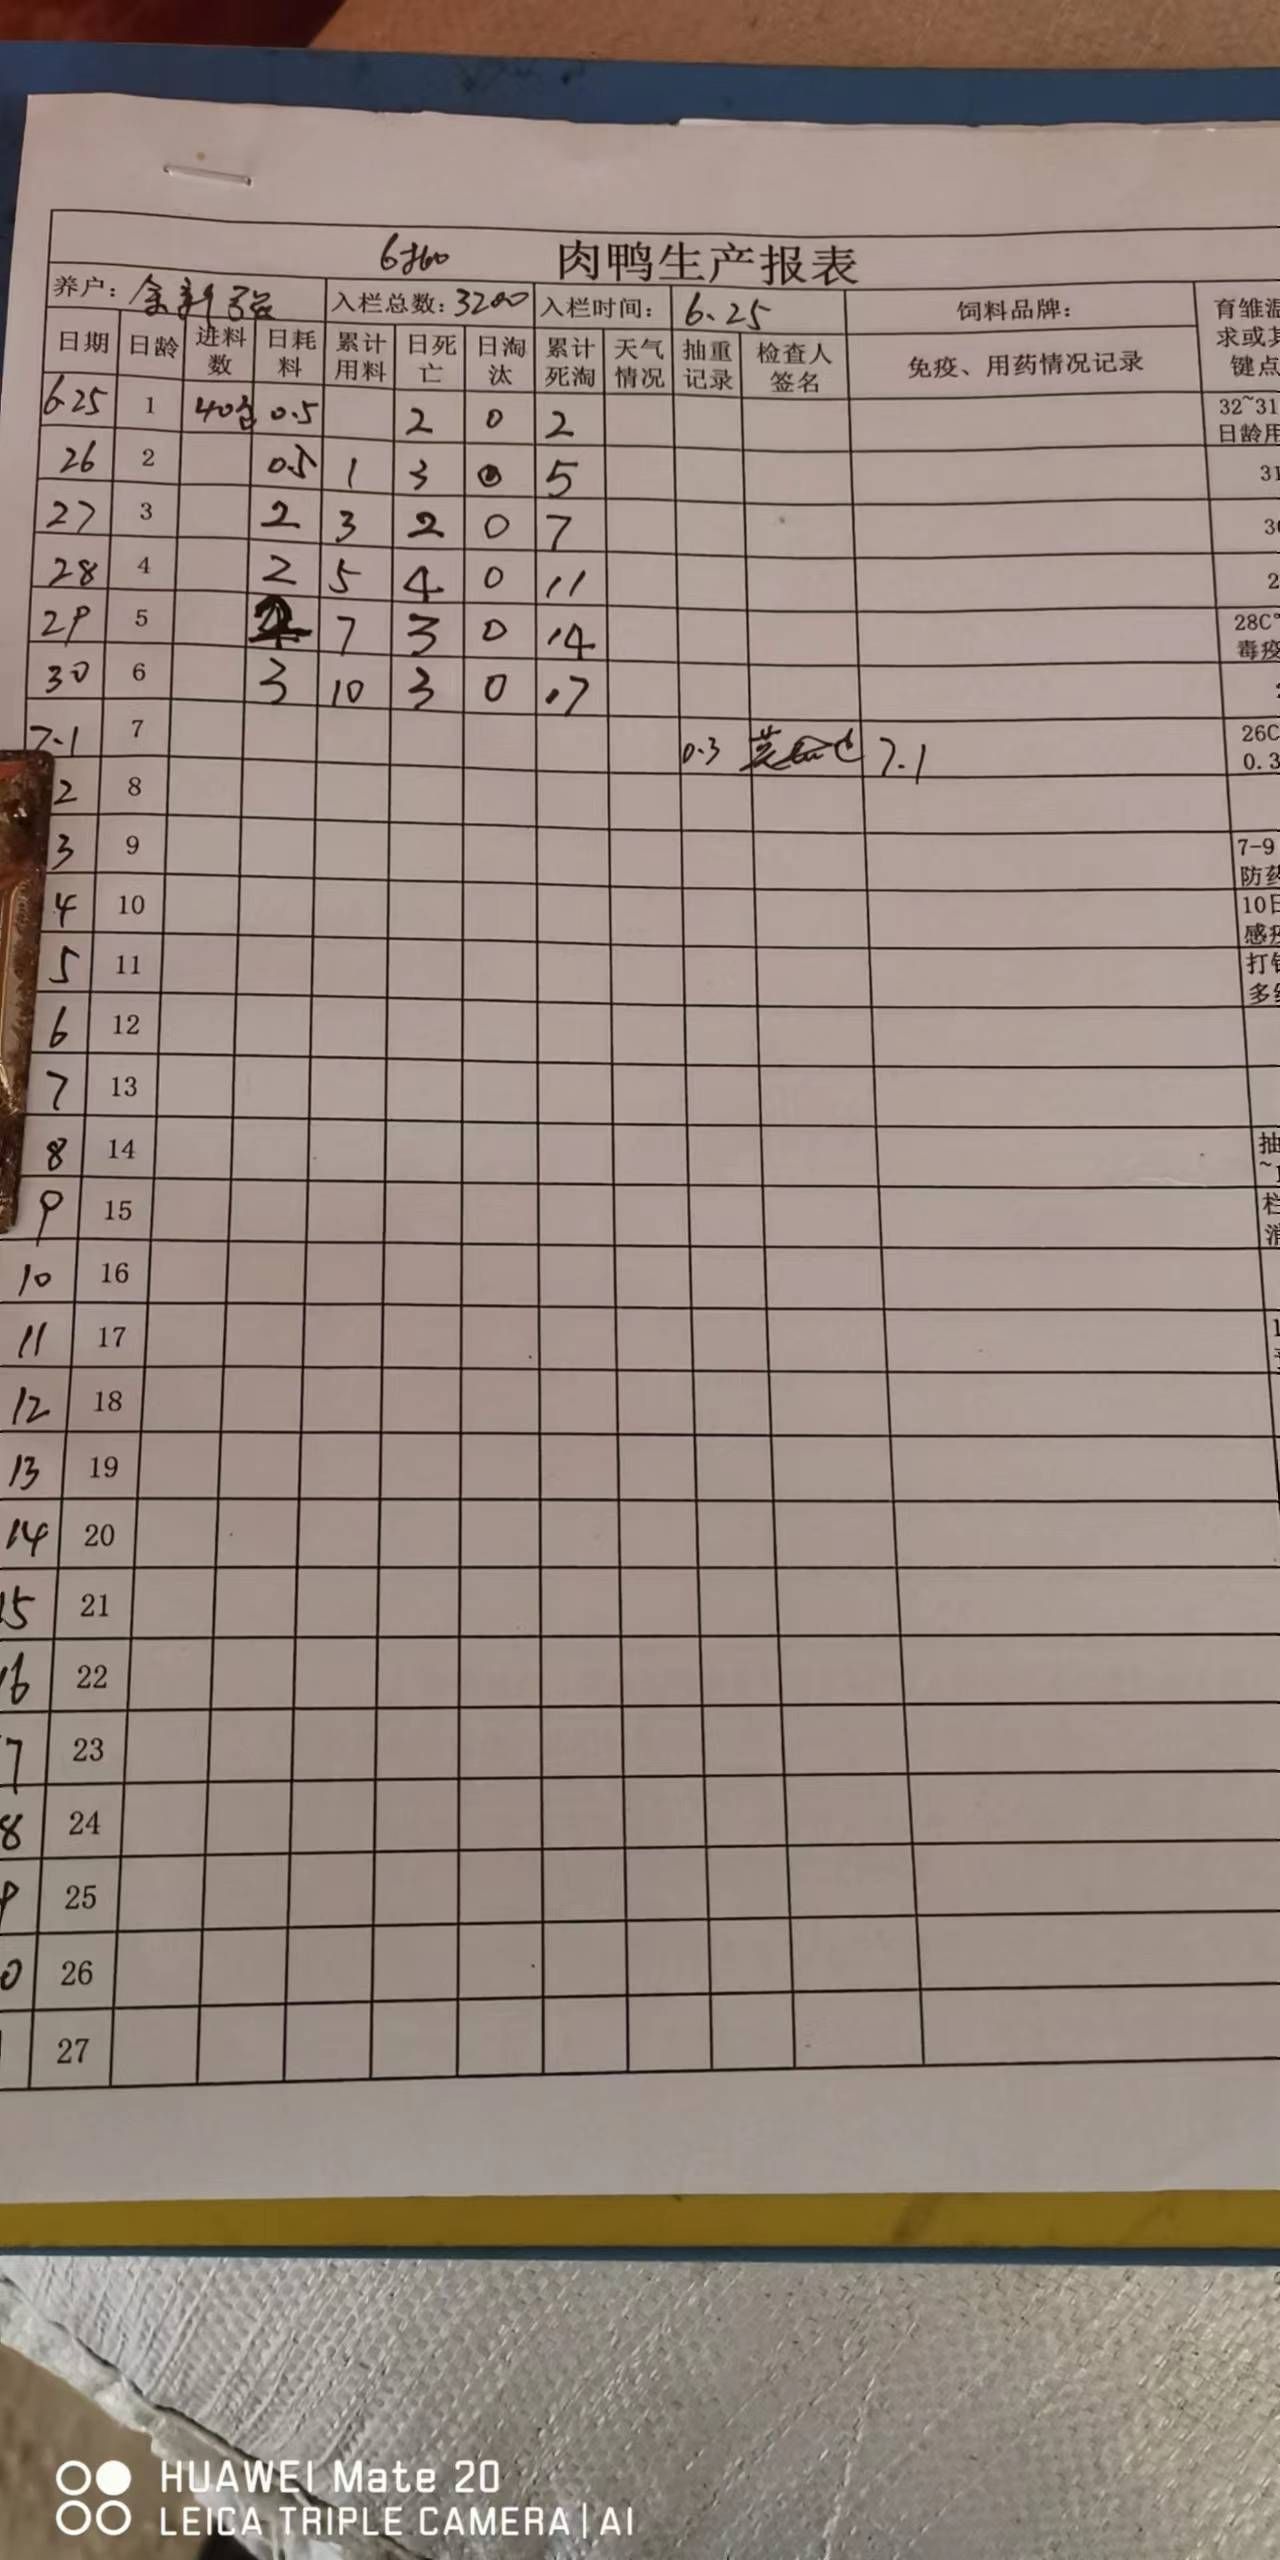 肉鸭生产报表
养户: 入栏总数: 3200 入栏时间: 6.25 饲料品牌: 育雏温
日期 日龄 进料数 日耗料 累计用料 日死亡 日淘汰 累计死淘 天气情况 抽重记录 检查人签名 免疫、用药情况记录 求或其 键点
6.25 1 40包 0.5 2 0 2 32~31 日龄用
26 2 0.5 1 3 0 5 31
27 3 2 3 2 0 7 30
28 4 2 5 4 0 11 2
29 5 7 3 0 14 28C° 毒疫
30 6 3 10 3 0 17
7.1 7 0.3 7.1 26C 0.3
2 8
3 9 7-9 防药
4 10 10日 感疫
5 11 打针 多维
6 12
7 13
8 14 抽 ~1
9 15 栏 消
10 16
11 17 1
12 18
13 19
14 20
15 21
16 22
7 23
8 24
9 25
0 26
27
HUAWEI Mate 20
LEICA TRIPLE CAMERA | AI